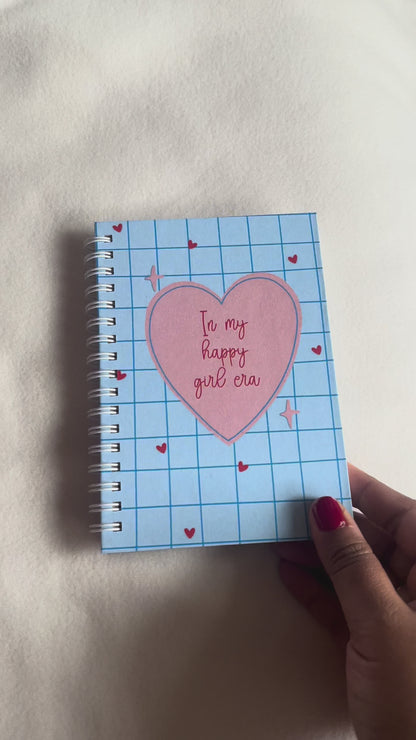 In my
happy
girl era